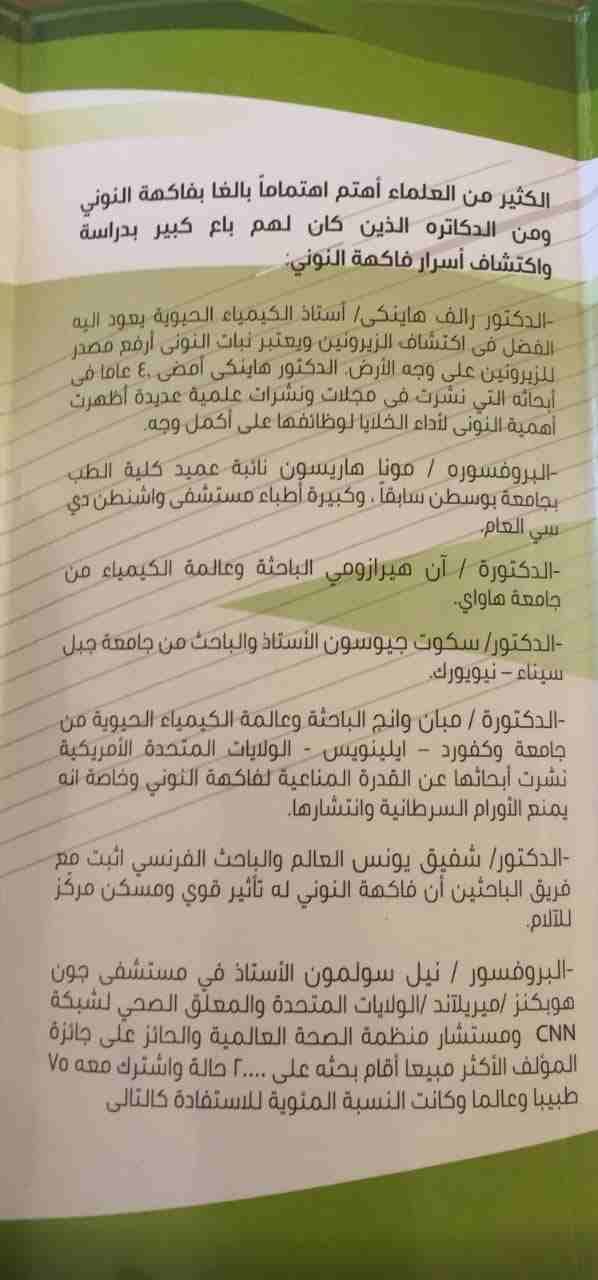 الكثير من العلماء أهتم اهتماماً بالغا بفاكهة النوني
ومن الدكاتره الذين كان لهم باع كبير بدراسة
واكتشاف أسرار فاكهة النوني:
-الدكتور رالف هاينكى/ أستاذ الكيمياء الحيوية يعود اليه
الفضل فى اكتشاف الزيرونين ويعتبر نبات النونى أرفع مصدر
للزيرونين على وجه الأرض. الدكتور هاينكى أمضى ٤٠ عاما فى
أبحاثه التي نشرت فى مجلات ونشرات علمية عديدة أظهرت
أهمية النونى لأداء الخلايا لوظائفها على أكمل وجه.
-البروفسوره / مونا هاريسون نائبة عميد كلية الطب
بجامعة بوسطن سابقاً ، وكبيرة أطباء مستشفى واشنطن دي
سي العام.
-الدكتورة / آن هيرازومي الباحثة وعالمة الكيمياء من
جامعة هاواي.
-الدكتور/ سكوت جيوسون الأستاذ والباحث من جامعة جبل
سيناء – نيويورك.
-الدكتورة / مبان وانج الباحثة وعالمة الكيمياء الحيوية من
جامعة وكفورد – ايلينويس - الولايات المتحدة الأمريكية
نشرت أبحاثها عن القدرة المناعية لفاكهة النوني وخاصة انه
يمنع الأورام السرطانية وانتشارها.
-الدكتور/ شفيق يونس العالم والباحث الفرنسي اثبت مع
فريق الباحثين أن فاكهة النوني له تأثير قوي ومسكن مركّز
للآلام.
-البروفسور / نيل سولمون الأستاذ في مستشفى جون
هوبكنز /ميريلآند /الولايات المتحدة والمعلق الصحي لشبكة
CNN ومستشار منظمة الصحة العالمية والحائز على جائزة
المؤلف الأكثر مبيعا أقام بحثه على ٢٠٠٠٠ حالة واشترك معه ٧٥
طبيبا وعالما وكانت النسبة المئوية للاستفادة كالتالى